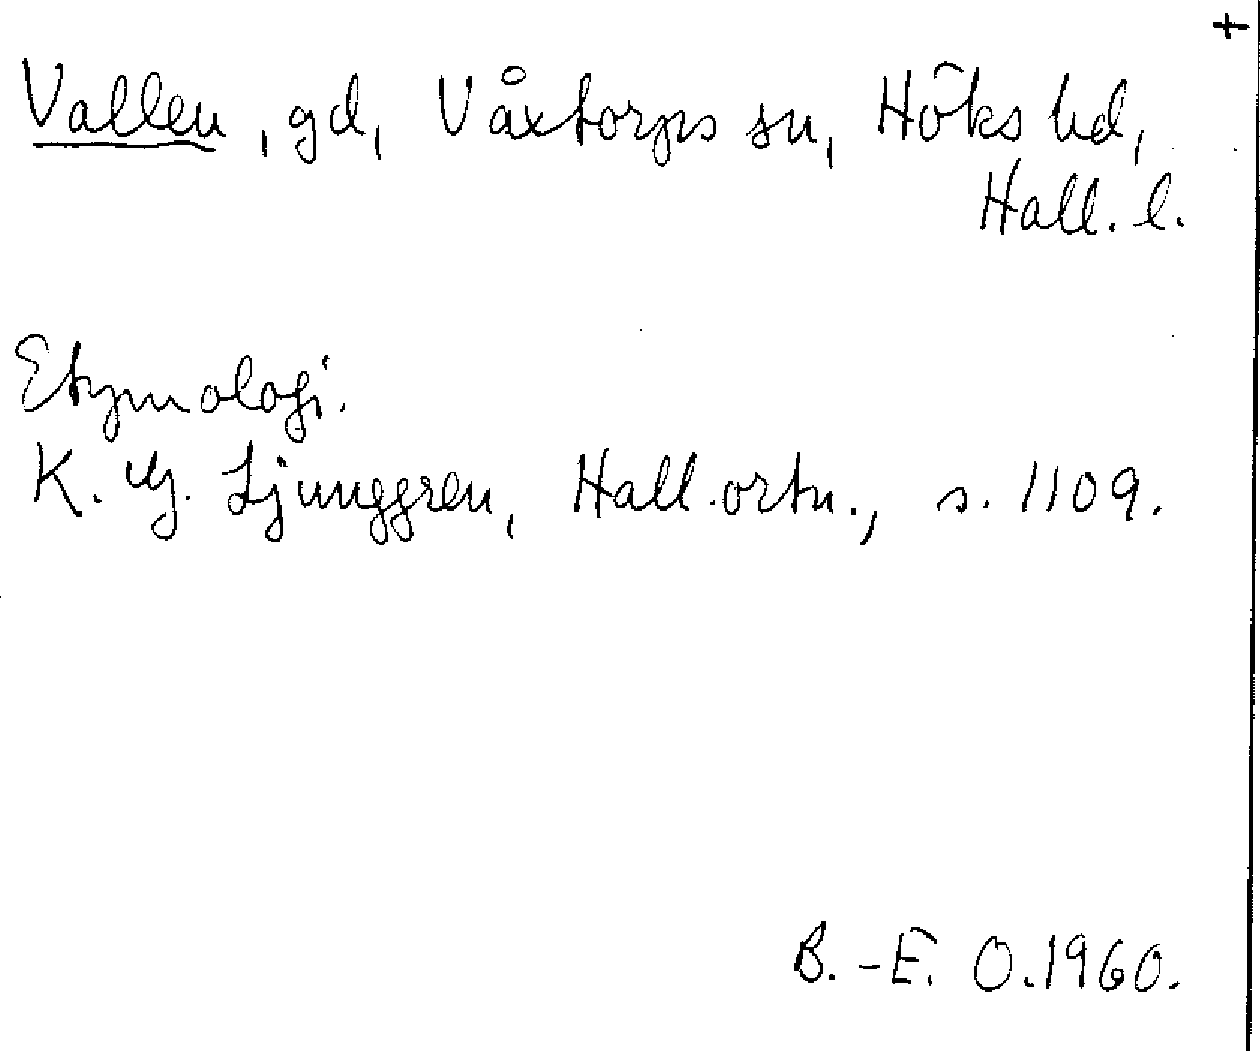 +
Vallen, gd, Våxtorps sn, Höks hd,
Hall. l.
Etymologi.
K. G. Ljunggren, Hall. ortn., s. 1109.
B.-E. O. 1960.